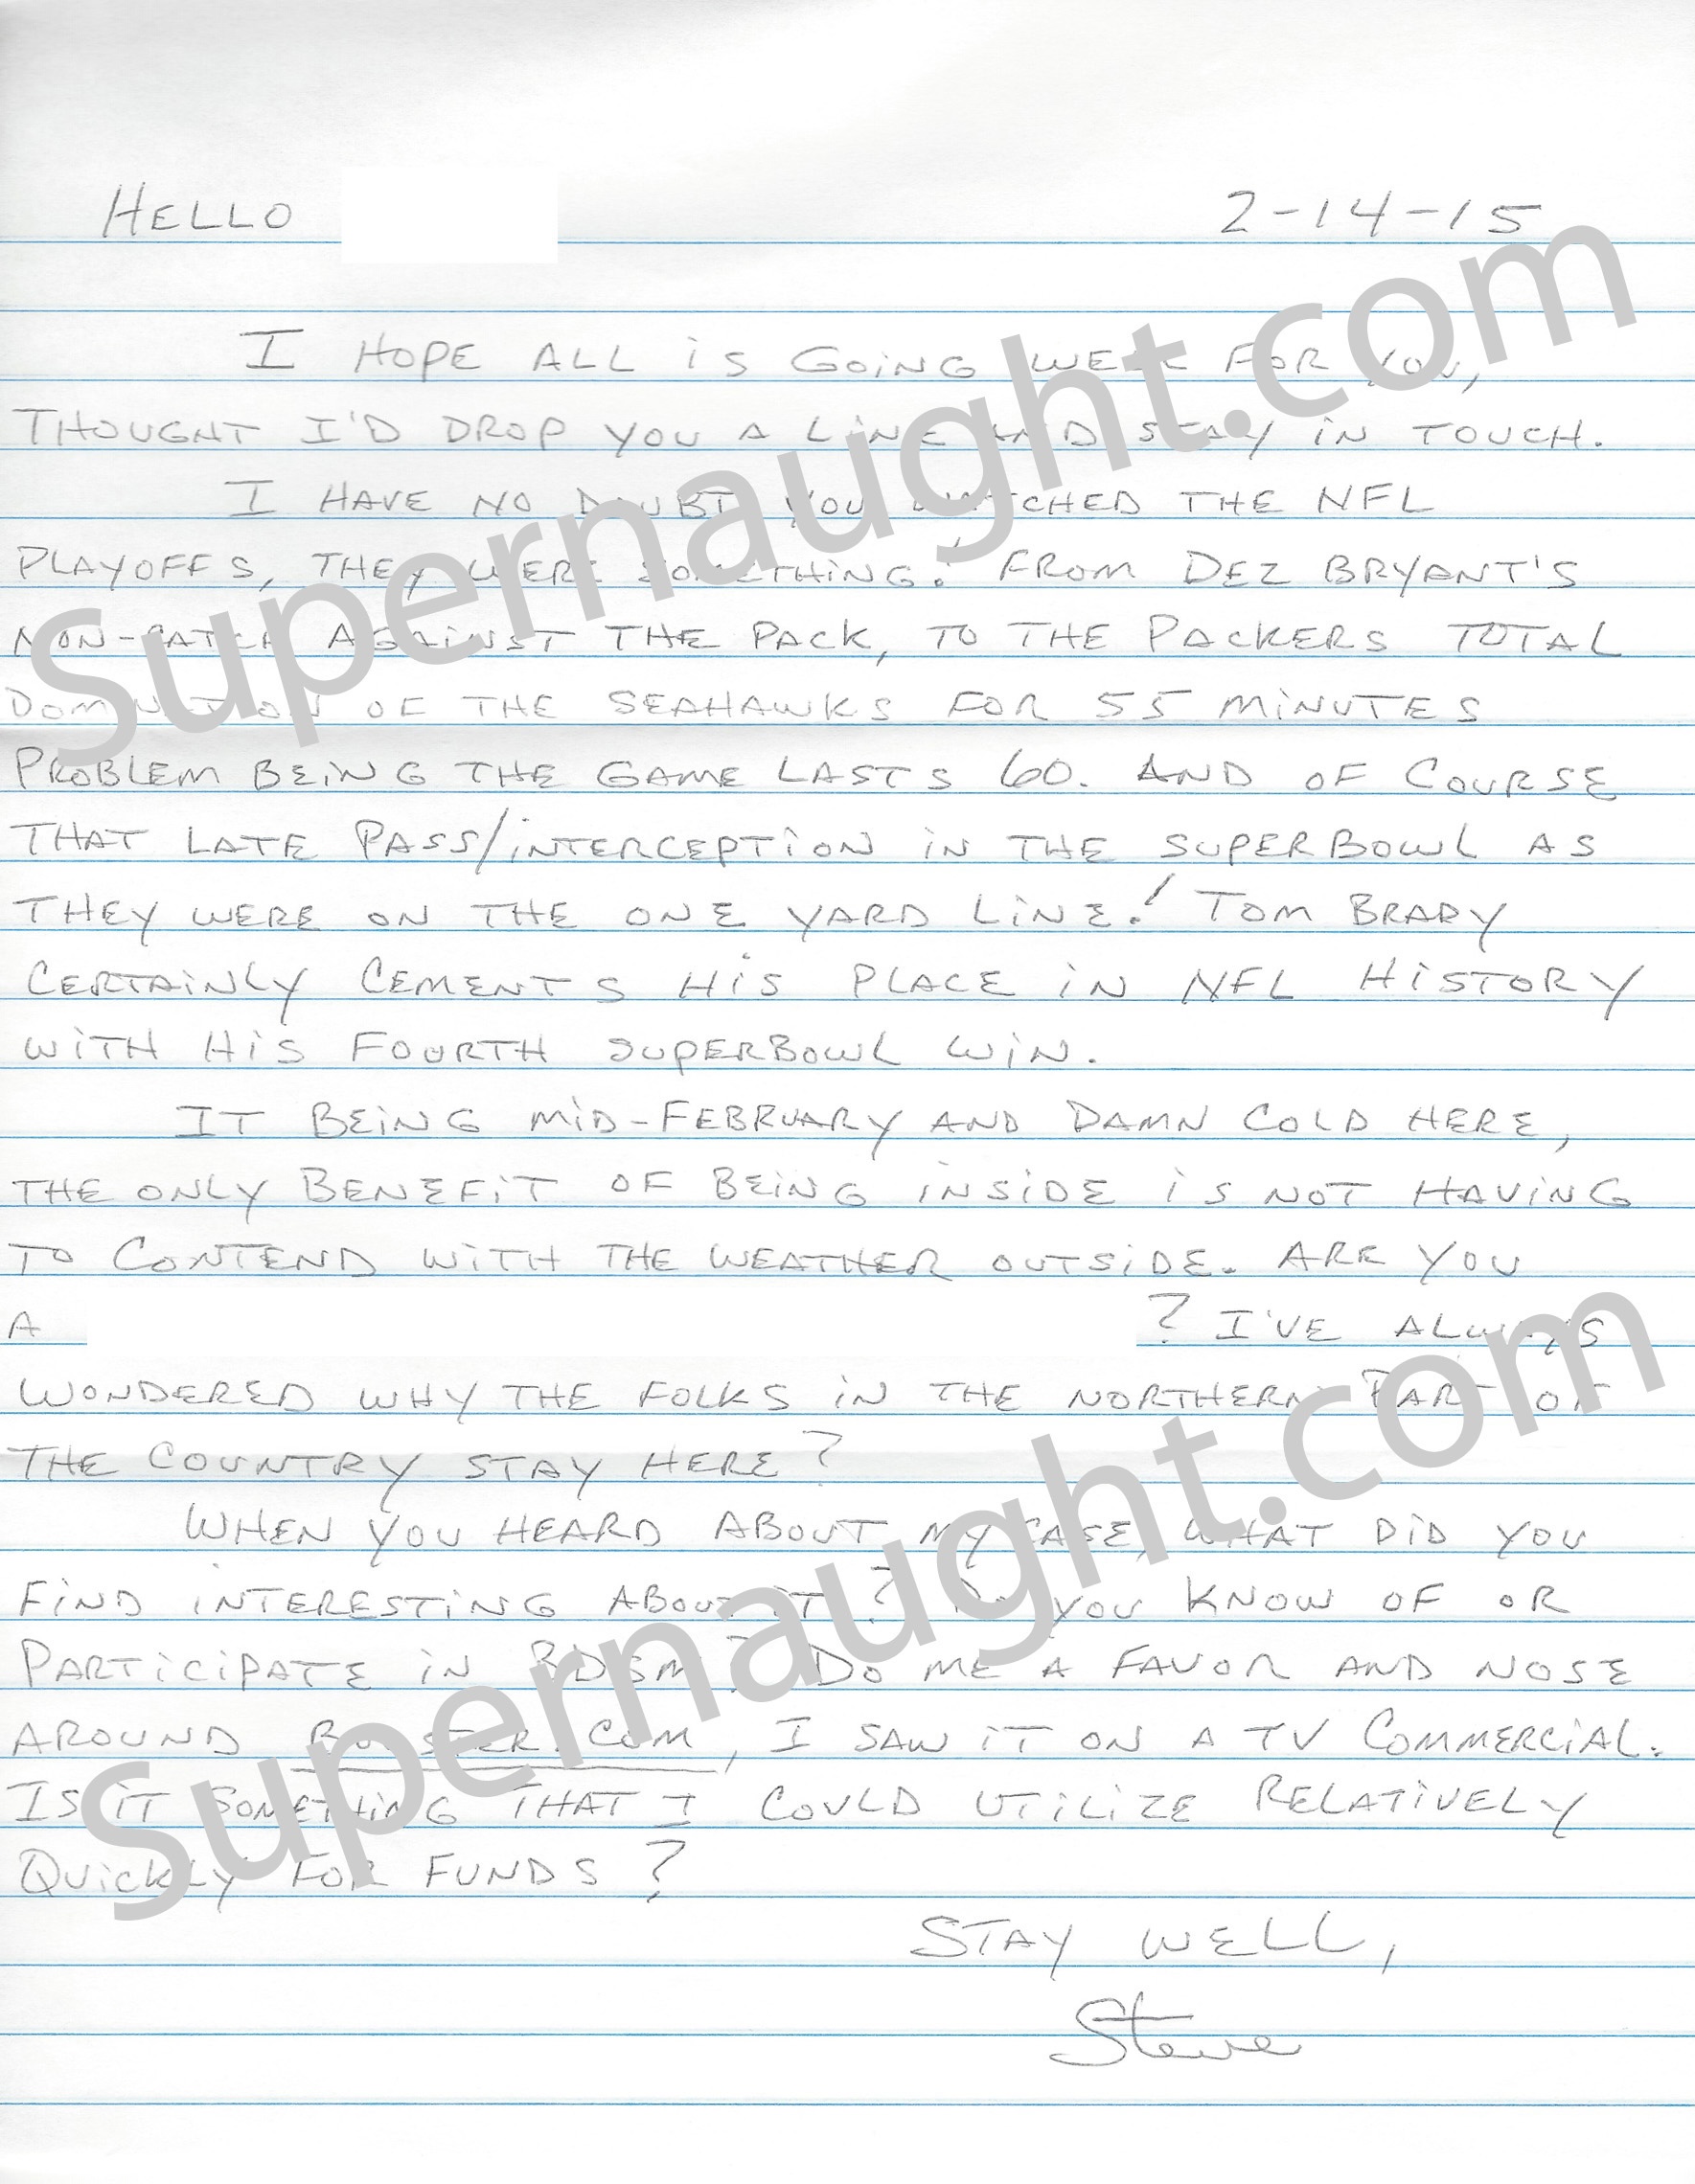 HELLO 2-14-15
I HOPE ALL IS GOING WELL FOR YOU,
THOUGHT I'D DROP YOU A LINE AND STAY IN TOUCH.
I HAVE NO DOUBT YOU WATCHED THE NFL
PLAYOFFS, THEY WERE SOMETHING! FROM DEZ BRYANT'S
NON-CATCH AGAINST THE PACK, TO THE PACKERS TOTAL
DOMINATION OF THE SEAHAWKS FOR 55 MINUTES
PROBLEM BEING THE GAME LASTS 60. AND OF COURSE
THAT LATE PASS/INTERCEPTION IN THE SUPERBOWL AS
THEY WERE ON THE ONE YARD LINE! TOM BRADY
CERTAINLY CEMENTS HIS PLACE IN NFL HISTORY
WITH HIS FOURTH SUPERBOWL WIN.
IT BEING MID-FEBRUARY AND DAMN COLD HERE,
THE ONLY BENEFIT OF BEING INSIDE IS NOT HAVING
TO CONTEND WITH THE WEATHER OUTSIDE. ARE YOU
A ? I'VE ALWAYS
WONDERED WHY THE FOLKS IN THE NORTHERN PART OF
THE COUNTRY STAY HERE?
WHEN YOU HEARD ABOUT MY CASE, WHAT DID YOU
FIND INTERESTING ABOUT IT? DO YOU KNOW OF OR
PARTICIPATE IN BDSM? DO ME A FAVOR AND NOSE
AROUND .COM, I SAW IT ON A TV COMMERCIAL.
IS IT SOMETHING THAT I COULD UTILIZE RELATIVELY
QUICKLY FOR FUNDS?
STAY WELL,
Steve
Supernaught.com
Supernaught.com